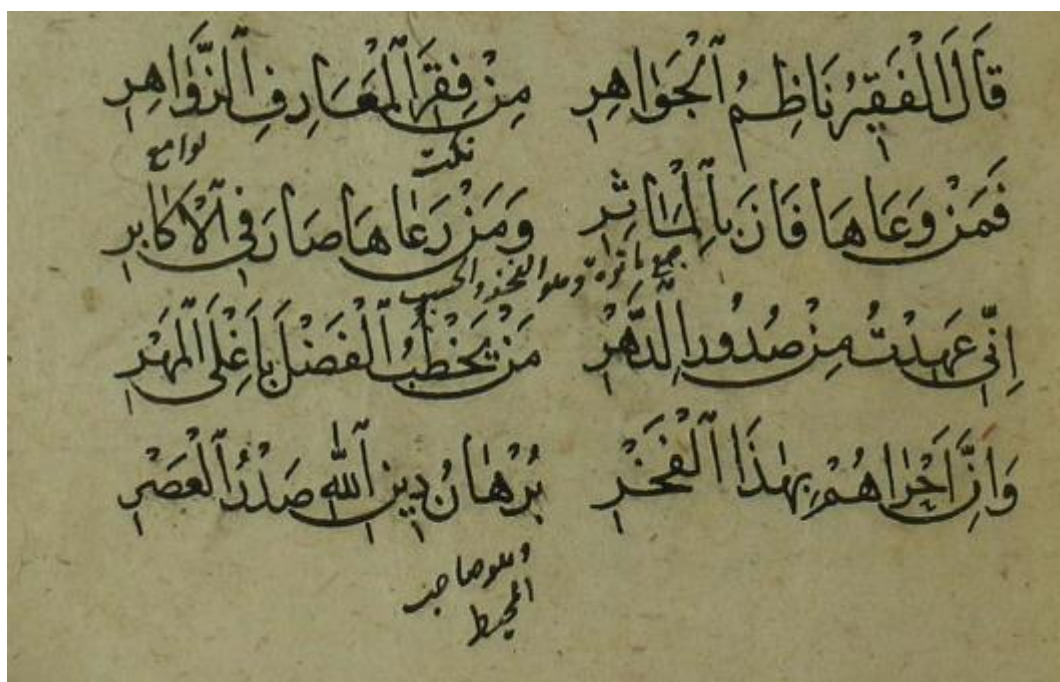 قَالَ الْفَقِيرُ نَاظِمُ الْجَوَاهِرِ مِنْ فِقَرِ الْمَعَارِفِ الزَّوَاهِرِ
نكت لوامع
فَمَنْ وَعَاهَا فَازَ بِالْمَاٰثِرِ وَمَنْ رَعَاهَا صَارَ فِي الْاَكَابِرِ
جمع ماثرة وهو الفخر والحسب
اِنِّي عَهِدْتُ مِنْ صُدُورِ الدَّهْرِ مَنْ يَخْطُبُ الْفَضْلَ بِاَغْلَى الْمَهْرِ
وَاِنَّ اَحْرَاهُمْ بِهٰذَا الْفَخْرِ بُرْهَانُ دِينِ اللّٰهِ صَدْرُ الْعَصْرِ
وهو صاحب
المحيط